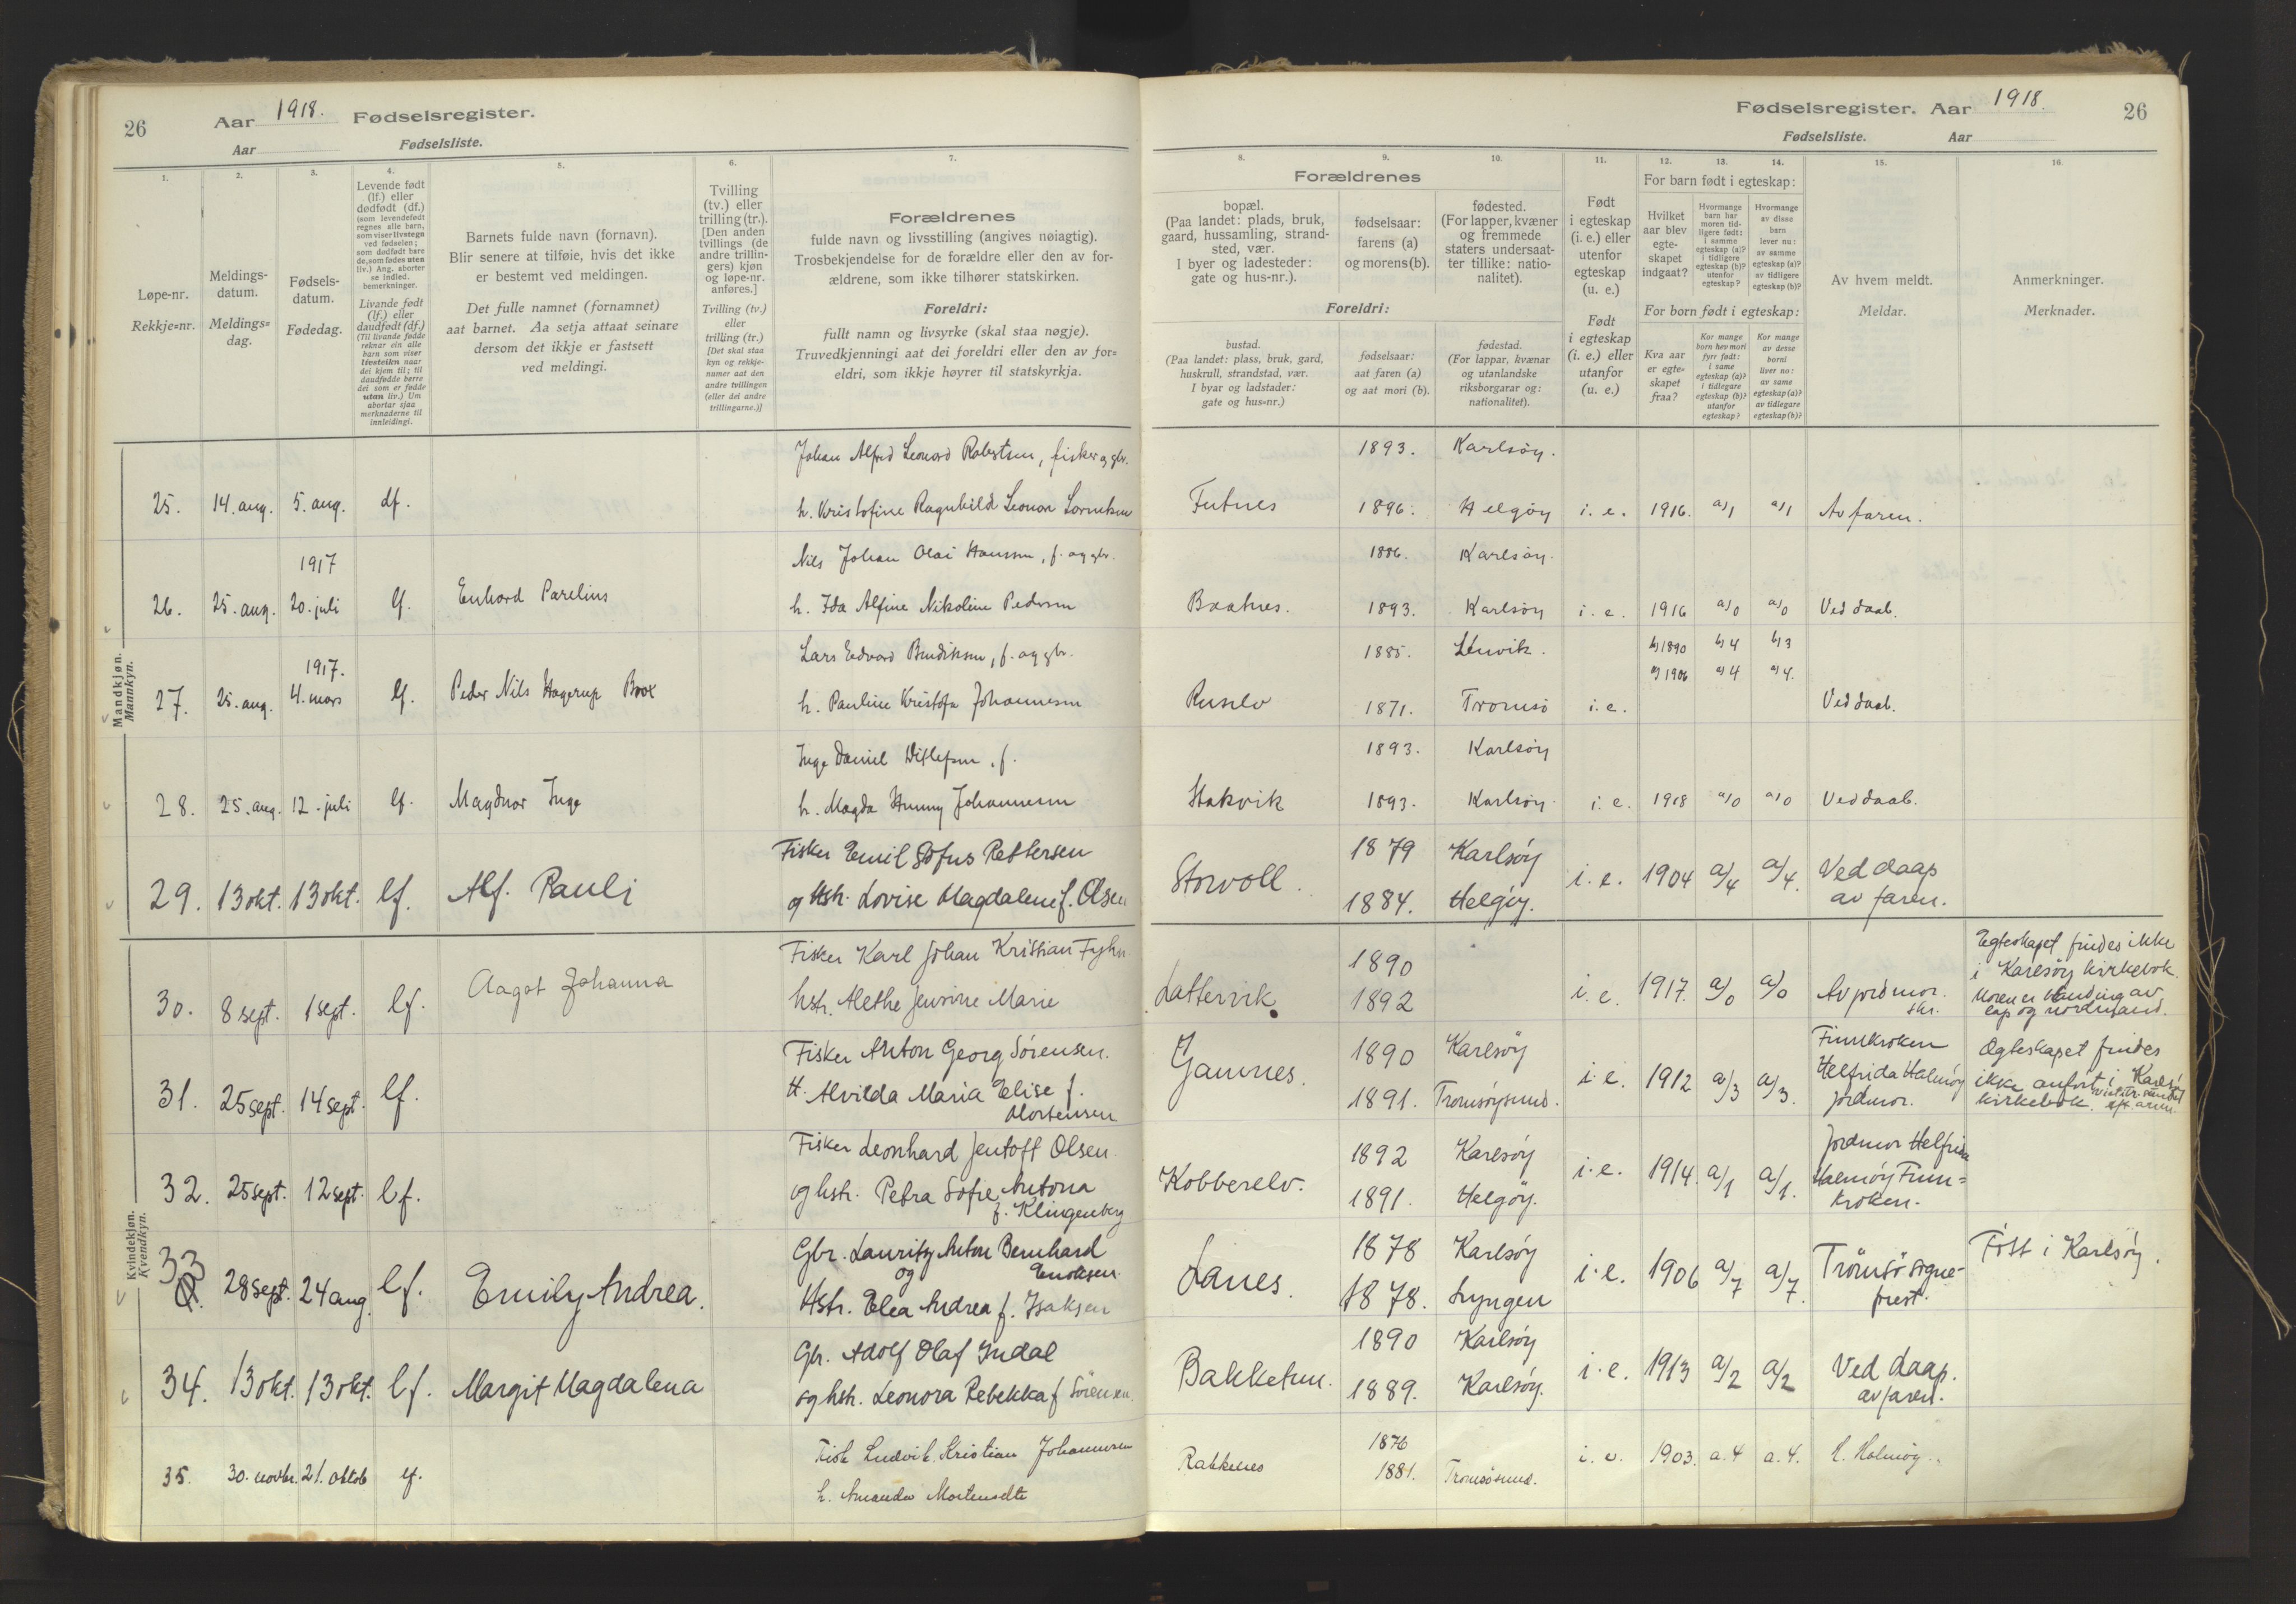 26 Aar 1918. Fødselsregister.
Aar Fødselsliste.
Fødselsregister. Aar 1918. 26
Fødselsliste. Aar
1. 2. 3. 4. 5. 6. 7.
Løpe-nr.
Rekkje=nr.
Meldings-
datum.
Meldings=
dag.
Fødsels-
datum.
Fødedag.
Levende født
(lf.) eller
dødfødt (df.)
(som levendefødt
regnes alle barn,
som viser livstegn
ved fødselen;
som dødfødt bare
de, som fødes uten
liv.) Ang. aborter
se indled.
bemerkninger.
Livande født
(lf.) eller
daudfødt (df.)
(Til livande fødde
reknar ein alle
barn som viser
livsteikn naar
dei kjem til; til
daudfødde berre
dei som er fødde
utan liv.) Um
abortar sjaa
merknaderne til
innleidingi.
Barnets fulde navn (fornavn).
Blir senere at tilføie, hvis det ikke
er bestemt ved meldingen.
Det fulle namnet (fornamnet)
aat barnet. Aa setja attaat seinare
dersom det ikkje er fastsett
ved meldingi.
Tvilling
(tv.) eller
trilling (tr.).
[Den anden
tvillings (de
andre trillin-
gers) kjøn
og løpe-nr.
anføres.]
Tvilling (tv.)
eller
trilling (tr.)
[Det skal staa
kyn og rekkje-
numer aat den
andre tvillingen
(eller dei andre
trillingarne.)]
Forældrenes
fulde navn og livsstilling (angives nøiagtig).
Trosbekjendelse for de forældre eller den av for-
ældrene, som ikke tilhører statskirken.
Foreldri:
fullt namn og livsyrke (skal staa nøgje).
Truvedkjenningi aat dei foreldri eller den av for=
eldri, som ikkje høyrer til statskyrkja.
8. 9. 10. 11. 12. 13. 14. 15. 16.
Forældrenes
bopæl.
(Paa landet: plads, bruk,
gaard, hussamling, strand-
sted, vær.
I byer og ladesteder:
gate og hus-nr.).
fødselsaar:
farens (a)
og morens (b).
fødested.
(For lapper, kvæner
og fremmede
staters undersaat-
ter tillike: natio-
nalitet).
Foreldri:
bustad.
(Paa landet: plass, bruk, gard,
huskrull, strandstad, vær.
I byar og ladstader:
gate og hus=nr.)
fødselsaar:
aat faren (a)
og aat mori (b).
fødestad.
(For lappar, kvænar
og utanlandske
riksborgarar og:
nationalitet).
Født
i egteskap
(i. e.) eller
utenfor
egteskap
(u. e.)
Født
i egteskap
(i. e.) eller
utanfor
(u. e.)
For barn født i egteskap:
Hvilket
aar blev
egte-
skapet
indgaat?
Hvormange
barn har
moren tid-
ligere født:
i samme
egteskap (a)?
i tidligere
egteskap (b)?
utenfor
egteskap?
Hvormange
av disse
barn
lever nu:
av samme
egteskap (a)?
av tidligere
egteskap (b)?
For born født i egteskap:
Kva aar
er egte=
skapet
fraa?
Kor mange
born hev mori
fyrr født:
i same
egteskap (a)?
i tidlegare
egteskap (b)?
utanfor
egteskap?
Kor mange
av desse
borni
liver no:
av same
egteskap (a)?
av tidlegare
egteskap (b)?
Av hvem meldt.
Meldar.
Anmerkninger.
Merknader.
Mandkjøn.
Mannkyn.
Johan Alfred Leonard Robertsen, fisker og gbr. 1893. Karlsøy.
25. 14. aug. 5. aug. df. h. Kristofine Ragnhild Leonor Futnes 1896. Helgøy i. e. 1916. a/1 a/1 Av faren.
1917 Nils Johan Olai Hansen, f. og gbr. 1886. Karlsøy.
26. 25. aug. 20. juli lf. Enhard Parelius h. Ida Alfine Nikoline Pedersen Baatnes. 1893. Karlsøy i. e. 1916 a/0 a/0 Ved daab.
Lars Edvard Bendiksen, f. og gbr. 1885. Lenvik. b) 1890 b) 4 b) 3
1917. a) 1906 a) 4 a) 4.
27. 25. aug. 4. mars lf. Peder Nils Hagerup h. Pauline Kristofa Johannesen Ruselv 1871. Tromsø i. e. Ved daab.
Inge Daniel Ditlefsen, f. 1893. Karlsøy
28. 25. aug. 12. juli lf. Magdnor Inge h. Magda Johannesen Stakvik 1893. Karlsøy. i. e. 1918 a/0 a/0 Ved daab.
Fisker Emil Sofus Pettersen 1879 Karlsöy
29. 13 okt. 13 okt. lf. Alf. Pauli og Hstr. Lovise Magdalene f. Olsen Storvoll. 1884. Helgöy. i. e. 1904 a/4 a/4. Ved daap
av faren.
Fisker Karl Johan Kristian Fyhn 1890 Egteskapet findes ikke
i Karlsöy kirkebok.
30. 8 sept. 1 sept. lf. Aagot Johanna hstr. Alethe Jensine Marie Lattervik 1892 i. e. 1917. a/0 a/0 Av jordmor.
skr. Moren er blanding av
lap og nordmand.
Fisker Anton Georg Sörensen. 1890 Karlsöy Finnkroken Ægteskapet findes
31. 25 sept. 14 sept. lf. H. Alvilda Maria Elise f.
Mortensen Gamnes. 1891. Tromsöysund. i. e. 1912 a/3 a/3. Helfrida Halmöy
jordmor. ikke anfört i Karlsöy
kirkebok.
Fisker Leonhard Jentoft Olsen 1892 Karlsöy Jordmor Helfrida
32. 25 sept. 12 sept. lf. og hstr. Petra Sofie Antona
f. Klingenberg Kobberelv. 1891. Helgöy. i. e. 1914. a/1 a/1. Halmöy Finn=
kroken.
Kvindekjøn.
Kvendkyn.
Gbr. Lauritz Anton Bernhard
Enoksen. 1878 Karlsöy
33 28 sept. 24 aug. lf. Emily Andrea. og
Hstr. Elea Andrea f. Isaksen Lanes. 1878. Lyngen i. e. 1906 a/7 a/7. Trömsö sogne-
prest. Föst i Karlsöy.
Gbr. Adolf Olaf Indal 1890 Karlsöy
34. 13 okt. 13 okt. lf. Margit Magdalena og hstr. Leonora Rebekka f Sörensen. Bakketun. 1889. Karlsöy. i. e. 1913 a/2 a/2 Ved daap.
av faren.
Fisk Ludvik Kristian Johannesen 1876
35. 30. novbr. 21. oktob lf. h. Amanda Mortensdtr Rakkenes 1881. Tromsøsund. i. e. 1903. a. 4 a. 4. H. Halmøy.